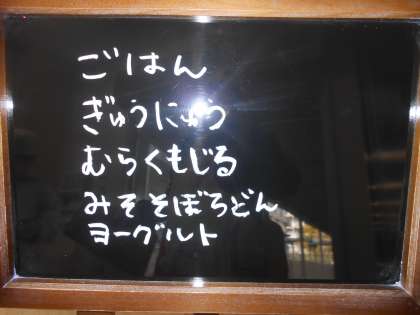 ごはん
ぎゅうにゅう
むらくもじる
みそそぼろどん
ヨーグルト